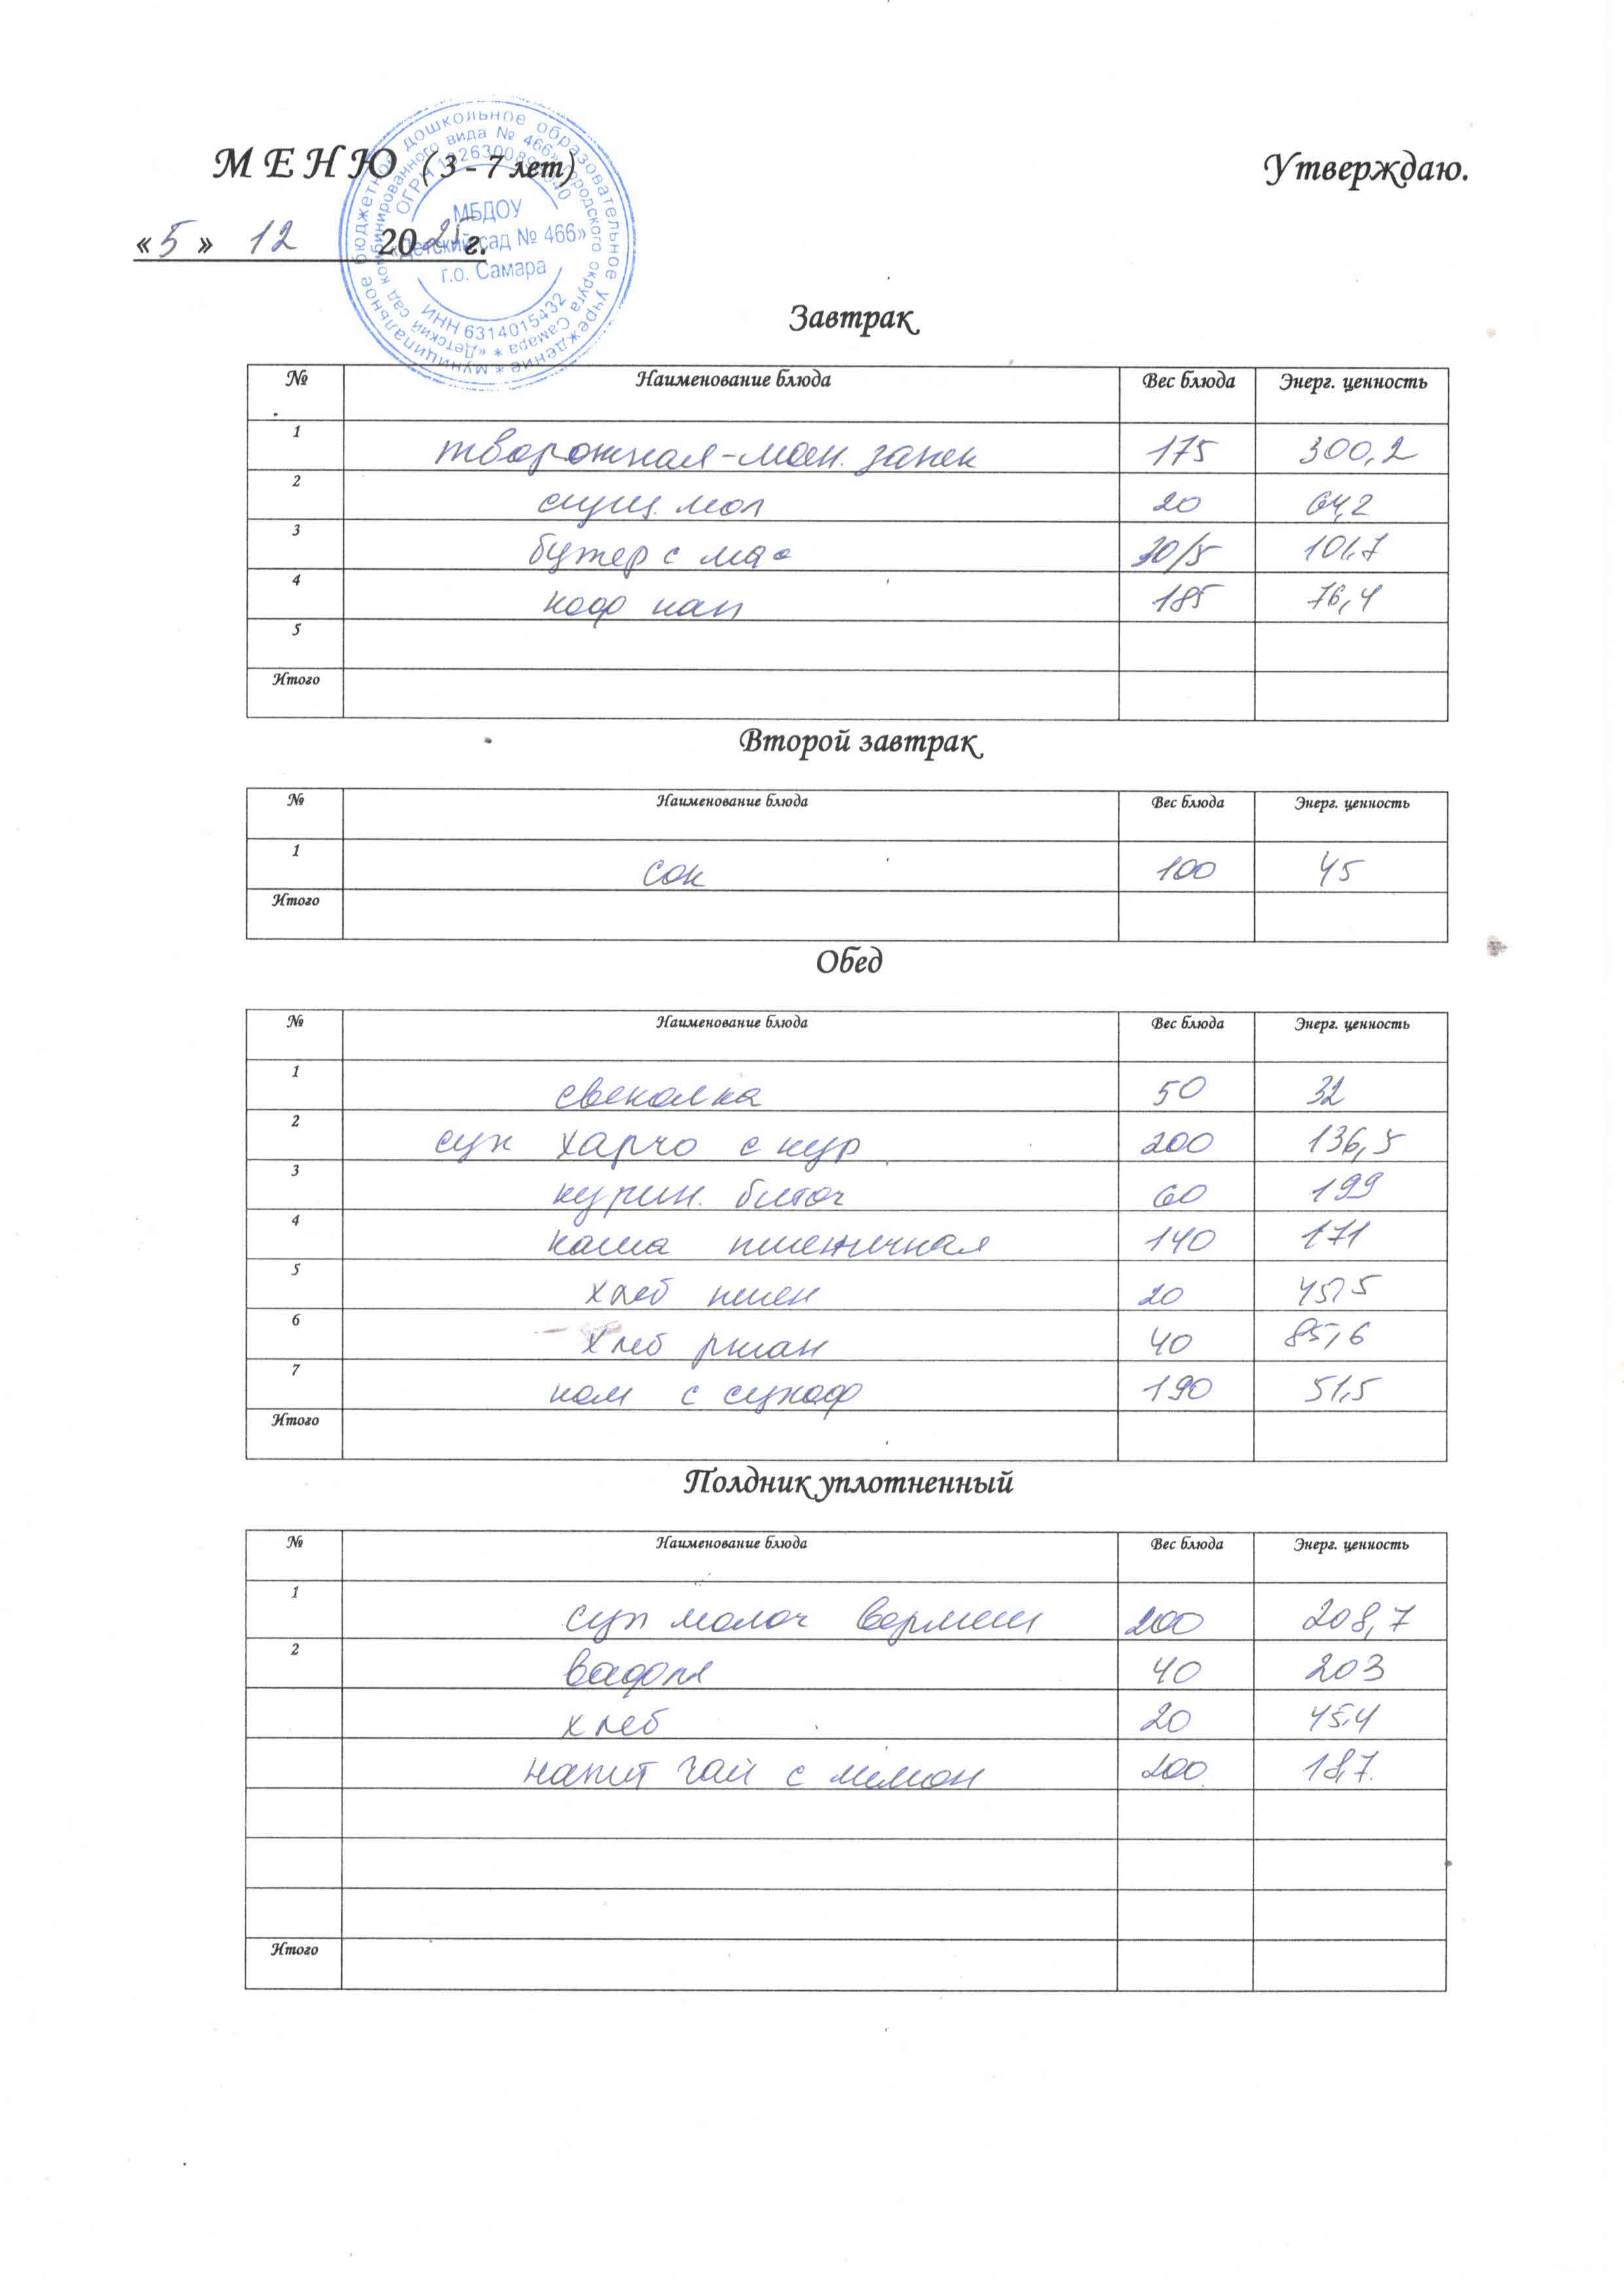 М Е Н Ю (3 - 7 лет)
Утверждаю.
«5» 12 2025г.
Муниципальное бюджетное дошкольное образовательное учреждение * «Детский сад комбинированного вида № 466» городского округа Самара *
МБДОУ
«Детский сад № 466»
г.о. Самара
ИНН 6314015432
Завтрак
№ Наименование блюда Вес блюда Энерг. ценность
1 творожная-ман. запек 175 300,2
2 сгущ. мол 20 64,2
3 бутер с мас 30/5 101,7
4 коф нап 185 76,4
5
Итого
Второй завтрак
№ Наименование блюда Вес блюда Энерг. ценность
1 сок 100 45
Итого
Обед
№ Наименование блюда Вес блюда Энерг. ценность
1 свеколка 50 32
2 суп харчо с кур 200 136,5
3 курин. биточ 60 199
4 каша пшеничная 140 171
5 хлеб пшен 20 45,5
6 хлеб ржан 40 85,6
7 ком с сухоф 190 51,5
Итого
Полдник уплотненный
№ Наименование блюда Вес блюда Энерг. ценность
1 суп молоч вермиш 200 208,7
2 вафля 40 203
хлеб 20 45,4
напит чай с лимон 200 18,7
Итого